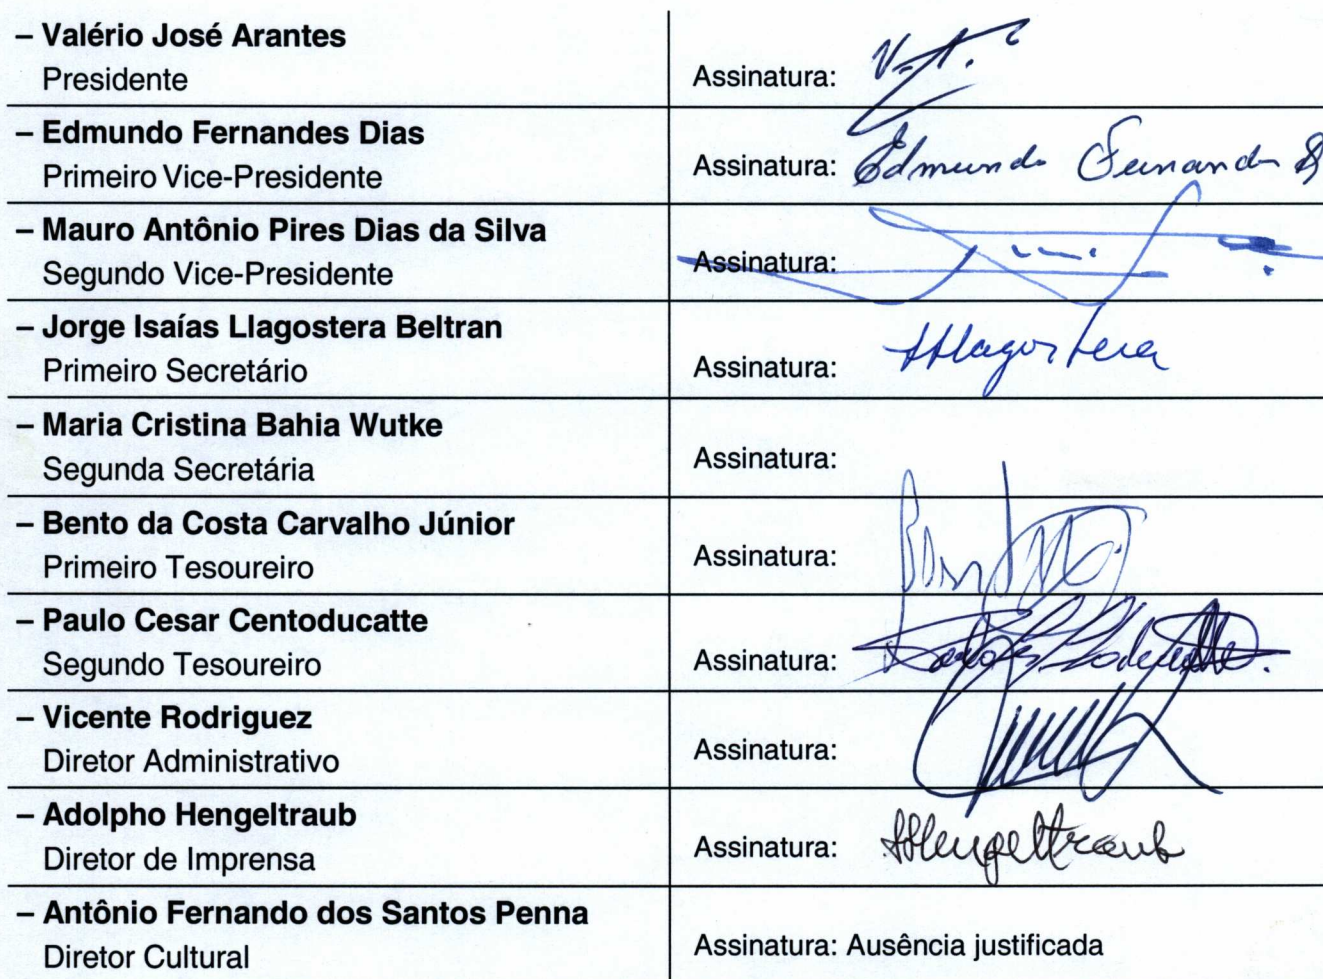 – Valério José Arantes
Presidente
Assinatura:
– Edmundo Fernandes Dias
Primeiro Vice-Presidente
Assinatura: Edmundo Fernandes
– Mauro Antônio Pires Dias da Silva
Segundo Vice-Presidente
Assinatura:
– Jorge Isaías Llagostera Beltran
Primeiro Secretário
Assinatura: Llagostera
– Maria Cristina Bahia Wutke
Segunda Secretária
Assinatura:
– Bento da Costa Carvalho Júnior
Primeiro Tesoureiro
Assinatura:
– Paulo Cesar Centoducatte
Segundo Tesoureiro
Assinatura:
– Vicente Rodriguez
Diretor Administrativo
Assinatura:
– Adolpho Hengeltraub
Diretor de Imprensa
Assinatura: AHengeltraub
– Antônio Fernando dos Santos Penna
Diretor Cultural
Assinatura: Ausência justificada